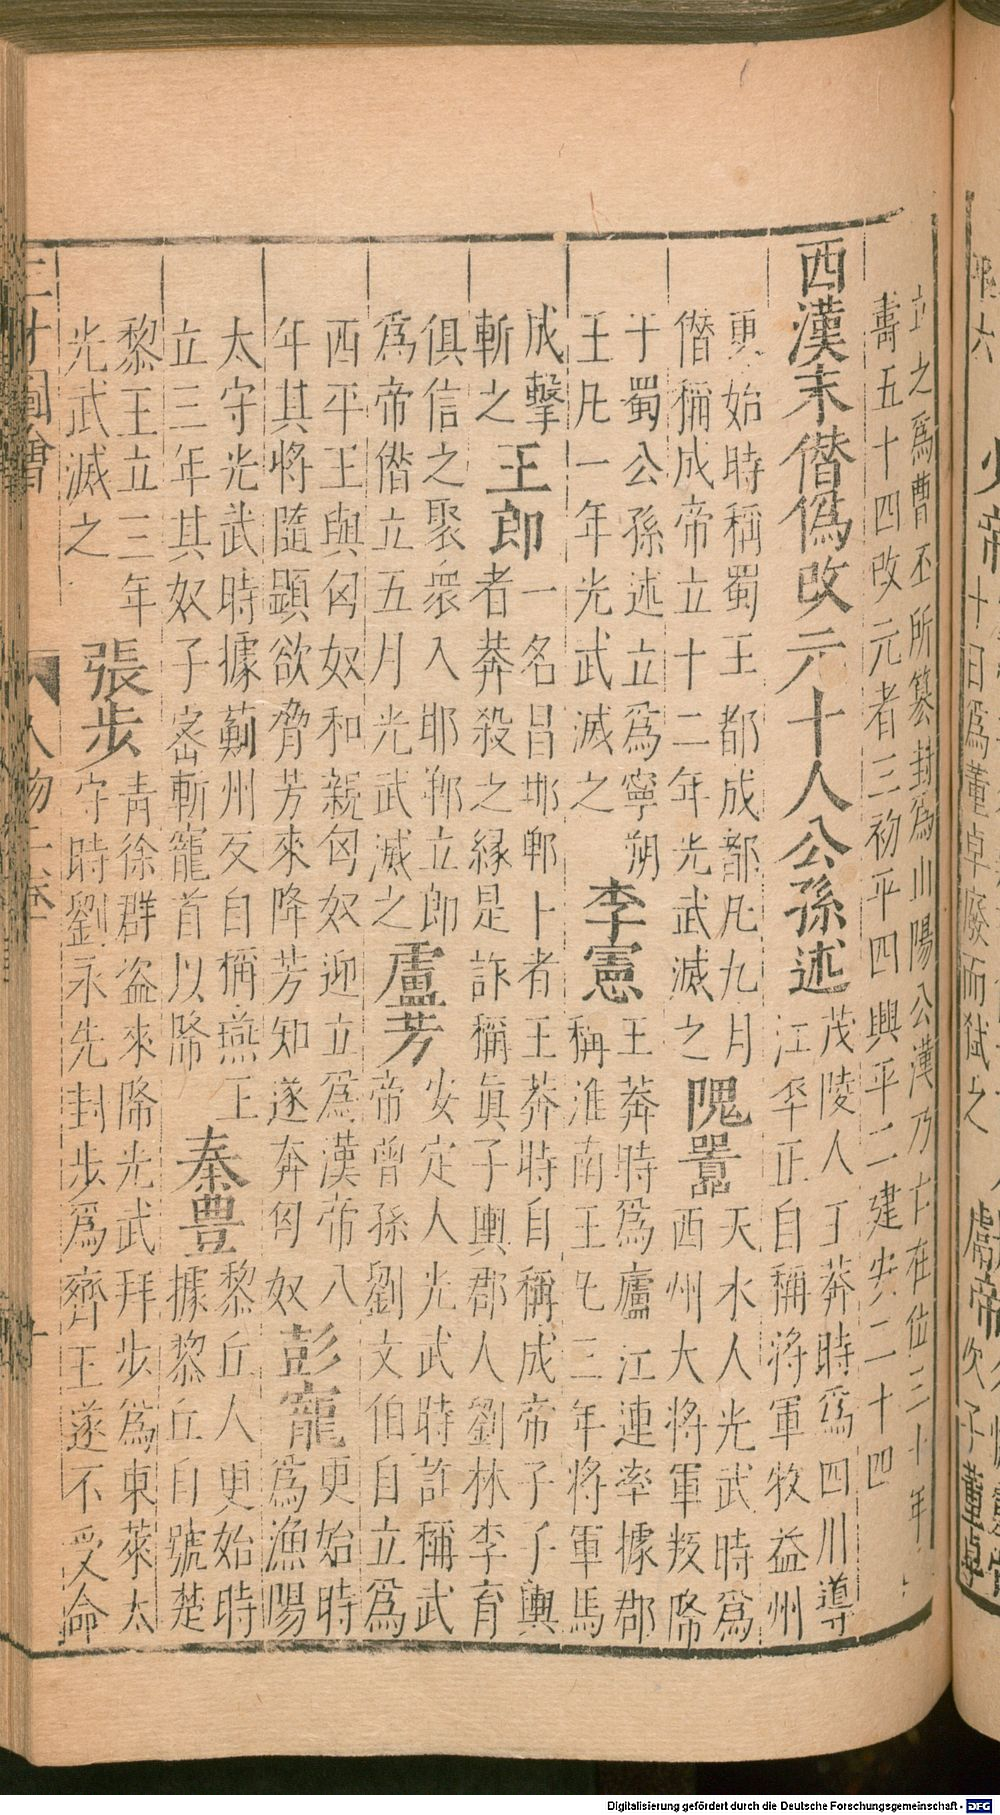 立之為曹丕所篡封為山陽公漢乃亡在位三十年
壽五十四改元者三初平四興平二建安二十四
西漢末僣偽改元十人公孫述
茂陵人王莽時爲四川導
江卒正自稱將軍牧益州
更始時稱蜀王都成都凡九月
僣稱成帝立十二年光武滅之
隗囂
天水人光武時爲
西州大將軍叛降
于蜀公孫述立爲寧朔
王凡一年光武滅之
李憲
王莽時爲廬江連率據郡
稱淮南王凡三年將軍馬
成擊
斬之
王郎
一名昌邯鄲卜者王莽時自稱成帝子子輿
者莽殺之緣是詐稱眞子輿郡人劉林李育
俱信之聚衆入邯鄲立郎
爲帝僣立五月光武滅之
盧芳
安定人光武時詐稱武
帝曾孫劉文伯自立爲
西平王與匈奴和親匈奴迎立爲漢帝八
年其將隨顯欲脅芳來降芳知遂奔匈奴
彭寵
更始時
爲漁陽
太守光武時據薊州反自稱燕王
立三年其奴子密斬寵首以降
秦豊
黎丘人更始時
據黎丘自號楚
黎王立三年
光武滅之
張步
青徐群盜來降光武拜步爲東萊太
守時劉永先封步爲齊王遂不受命
三才圖會
人物二卷
十
Digitalisierung gefördert durch die Deutsche Forschungsgemeinschaft - DFG